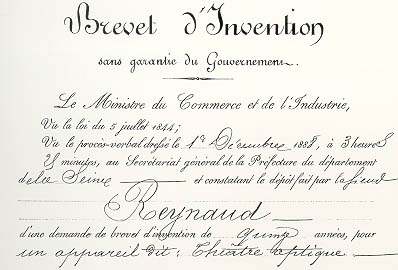 Brevet d'Invention
sans garantie du Gouvernement.
Le Ministre du Commerce et de l'Industrie,
Vu la loi du 5 juillet 1844;
Vu le procès-verbal dressé le 1er Décembre 1888, à 3 heures
minutes, au Secrétariat général de la Préfecture du département
de la Seine et constatant le dépôt fait par le Sieur
Reynaud
d'une demande de brevet d'invention de quinze années, pour
un appareil dit: Théâtre optique.